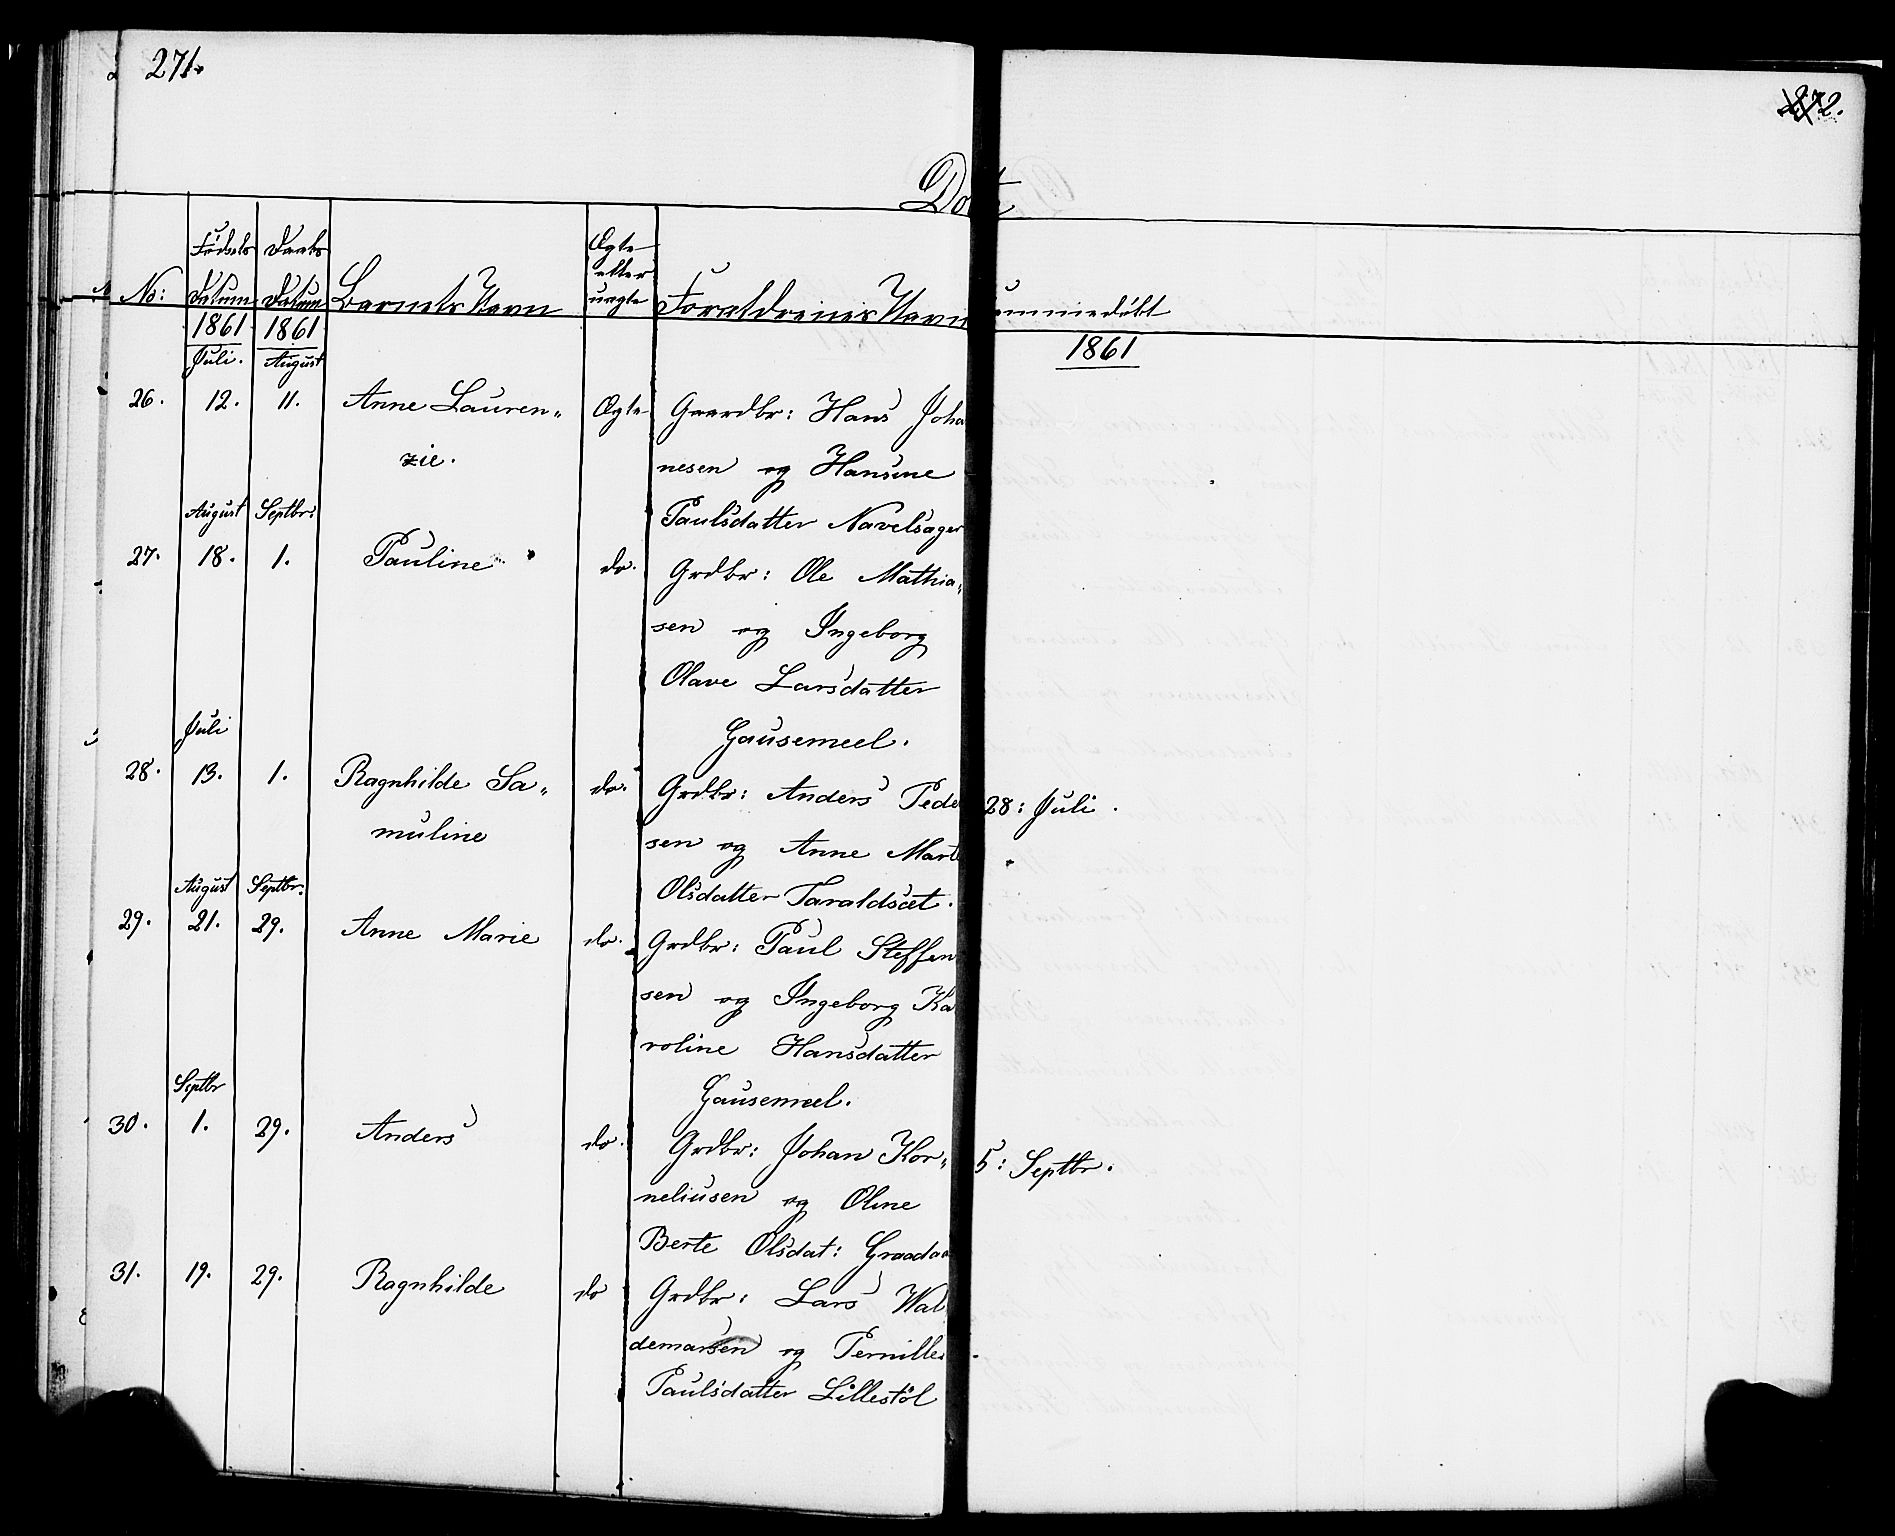 271.
272.
Døbte
No: Fødsels Datum Daabs Datum Barnets Navn Ægte eller uægte Forældrenes Navn
Hjemmedøbt
1861 1861
1861
Juli. August
26. 12. 11. Anne Lauren„ Ægte Gaardbr: Hans Joha
zie. nesen og Hansine
August Septbr: Paulsdatter Navelsager
27. 18. 1. Pauline do. Grdbr: Ole Mathia„
sen og Ingeborg
Olave Larsdatter
Juli Gausemeel.
28. 13. 1. Ragnhilde Sa„ do. Grdbr: Anders Peder 28: Juli.
muline sen og Anne Marte
August Septbr. Olsdatter Taraldsæt.
29. 21. 29. Anne Marie do. Grdbr: Paul Steffen
sen og Ingeborg Ka
roline Hansdatter
Septbr Gausemeel.
30. 1. 29. Anders do. Grdbr: Johan Kor„ 5: Septbr.
neliusen og Oline
Berte Olsdat: Graadal
31. 19. 29. Ragnhilde do Grdbr: Lars Wal
demarsen og Pernille
Paulsdatter Lillestöl